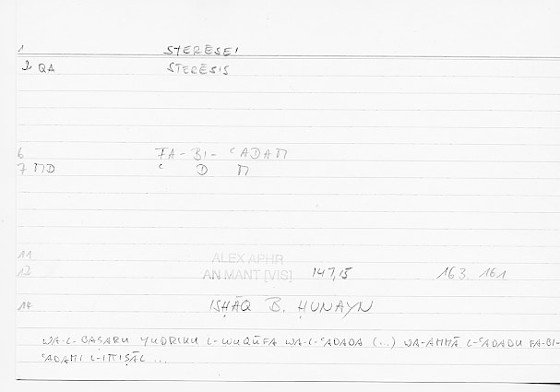 1 STERĒSEI
2 QA STERĒSIS
6 FA-BI-ʿADAM
7 MD ʿ D M
11 ALEX APHR
12 AN MANT [VIS] 147,15 163 161
14 ISḤĀQ B. ḤUNAYN
WA-L-BAṢARU YUDRIKU L-WUQŪFA WA-L-ʿADADA (...) WA-AMMĀ L-ʿADADU FA-BI-
ʿADAMI L-ITTIṢĀL ...